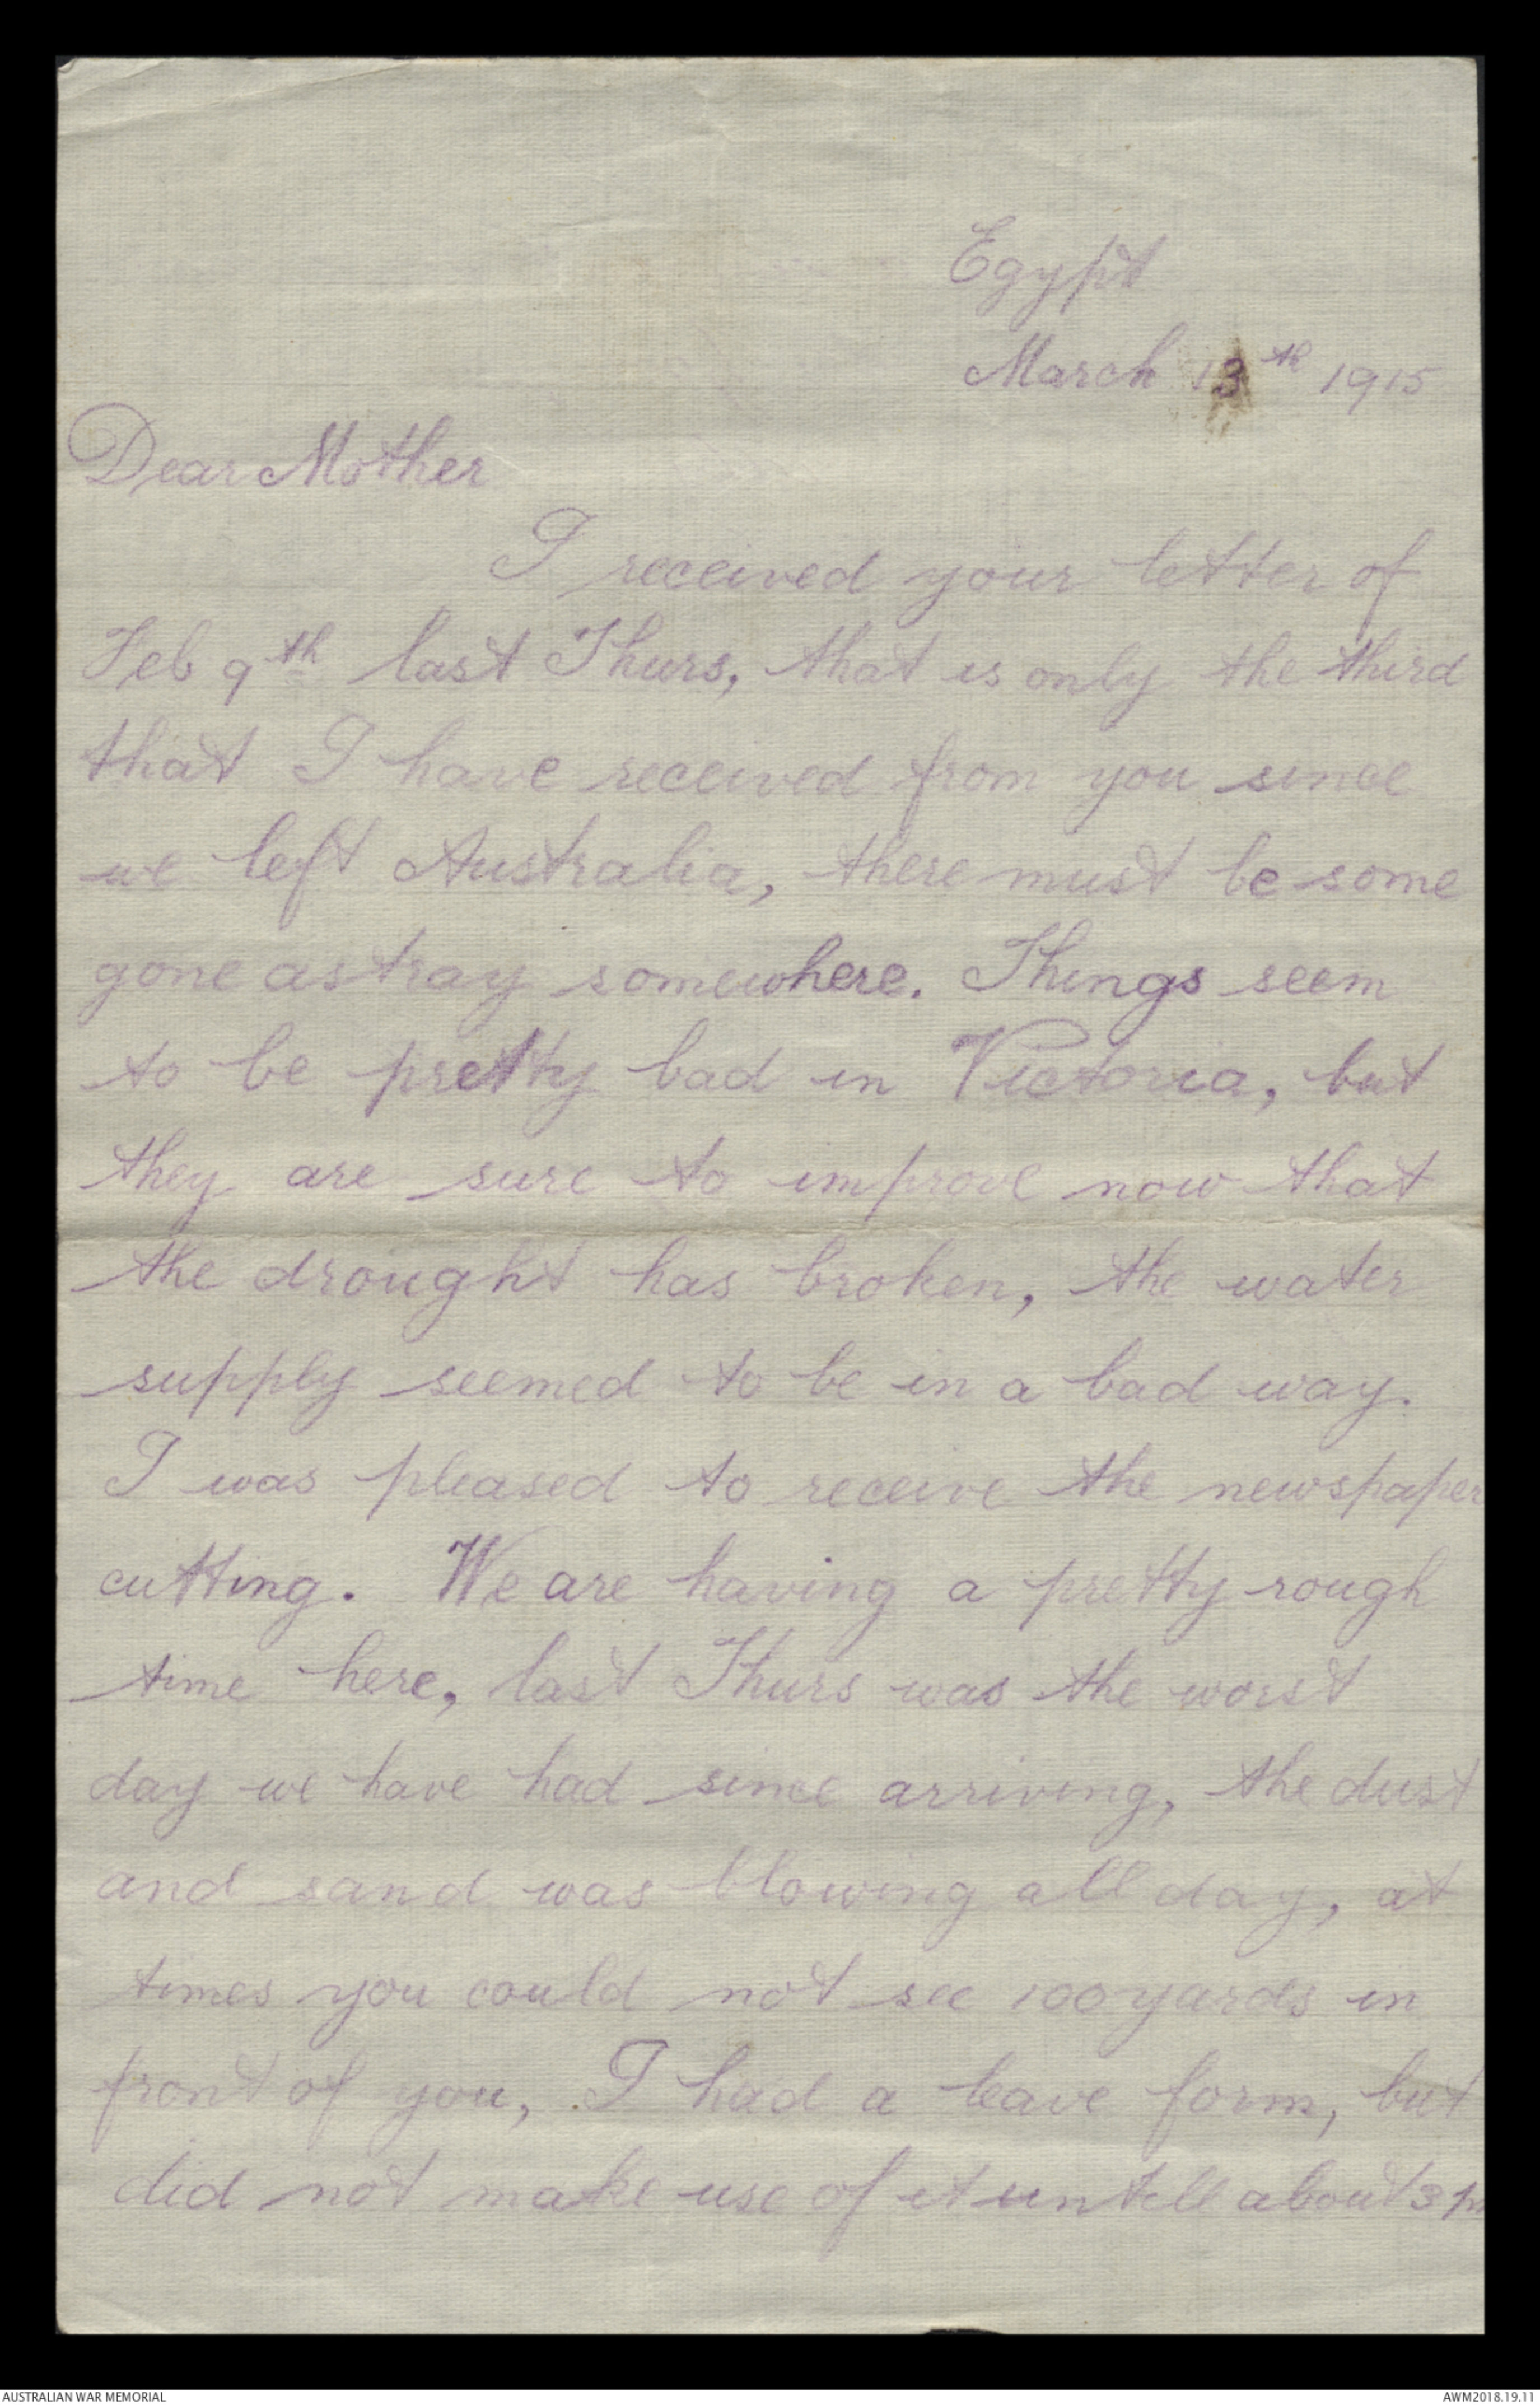 Egypt
March 13th 1915
Dear Mother
I received your letter of
Feb 9th last Thurs, that is only the third
that I have received from you since
we left Australia, there must be some
gone astray somewhere. Things seem
to be pretty bad in Victoria, but
they are sure to improve now that
the drought has broken, the water
supply seemed to be in a bad way.
I was pleased to receive the newspaper
cutting. We are having a pretty rough
time here, last Thurs was the worst
day we have had since arriving, the dust
and sand was blowing all day, at
times you could not see 100 yards in
front of you, I had a leave form, but
did not make use of it untill about 3 pm
AUSTRALIAN WAR MEMORIAL
AWM2018.19.11